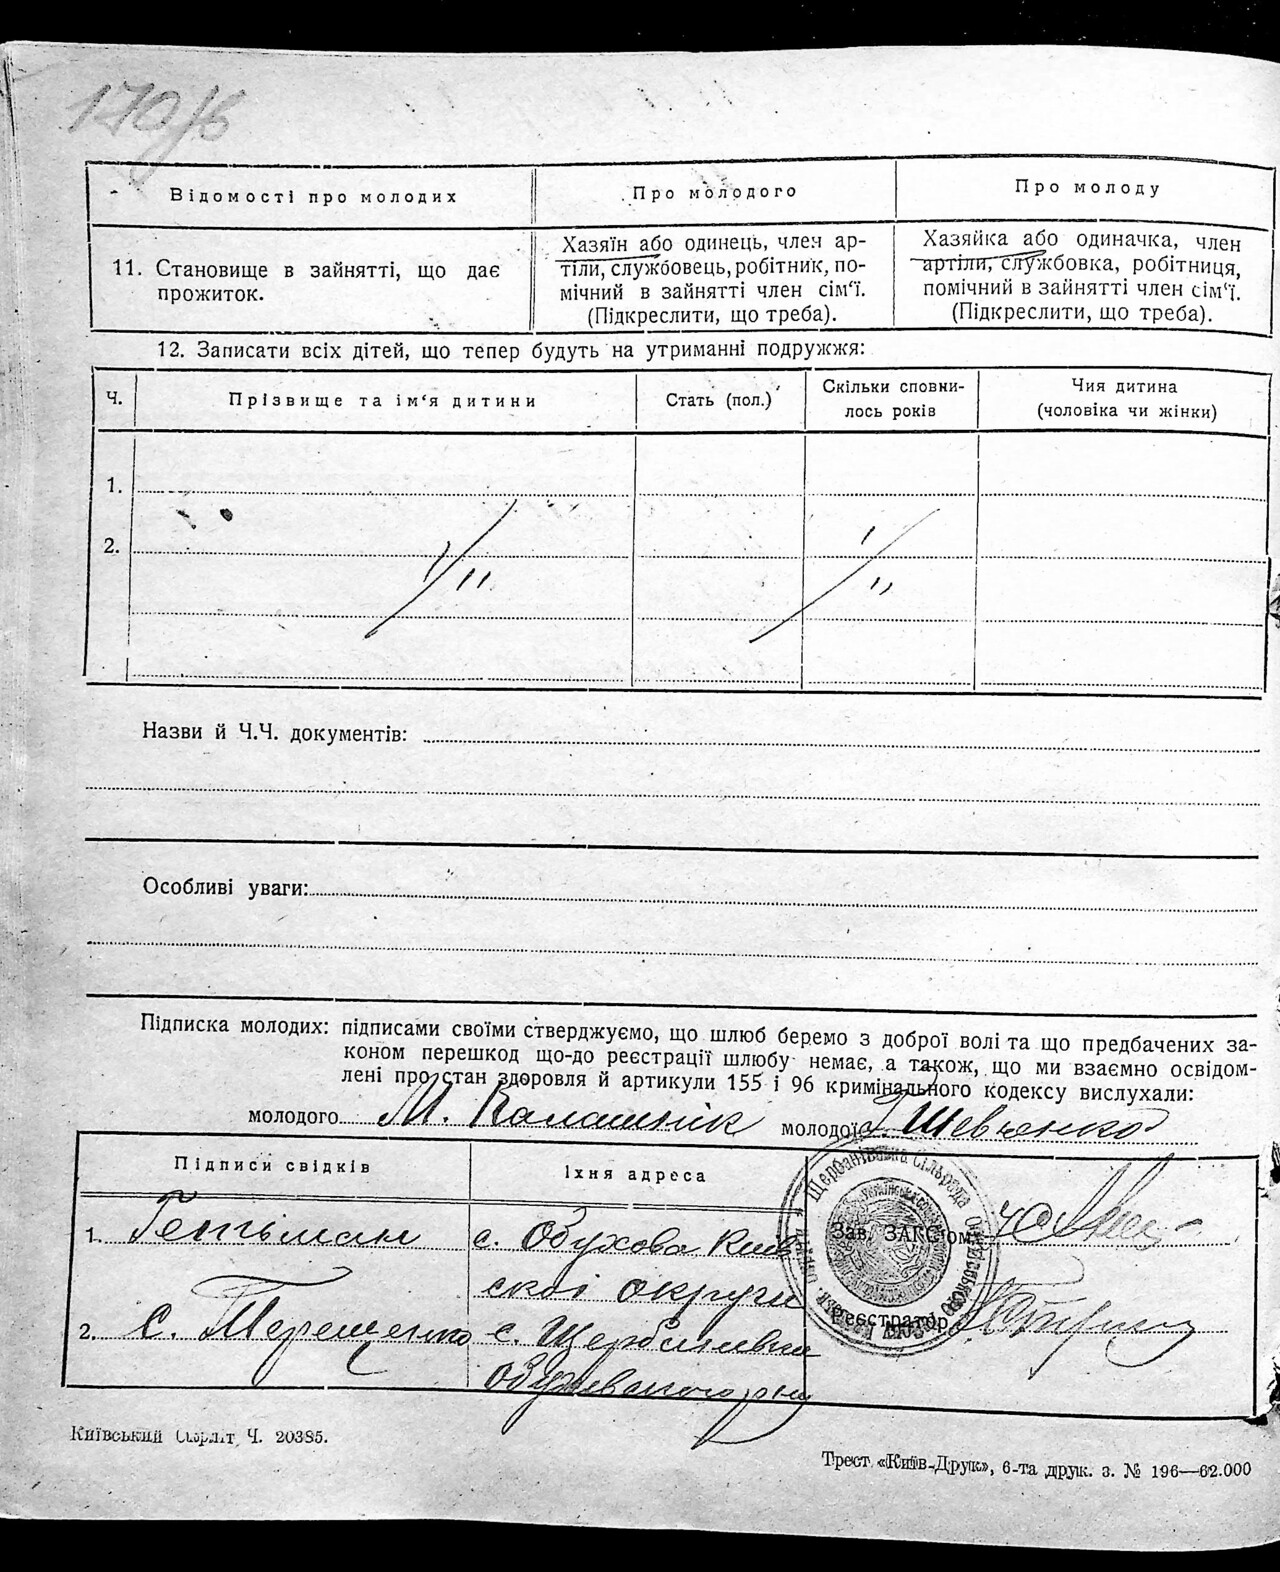 170/6
Відомості про молодих
Про молодого
Про молоду
11. Становище в зайнятті, що дає
прожиток.
Хазяїн або одинець, член ар-
тіли, службовець, робітник, по-
мічний в зайнятті член сім'ї.
(Підкреслити, що треба).
Хазяйка або одиначка, член
артіли, службовка, робітниця,
помічний в зайнятті член сім'ї.
(Підкреслити, що треба).
12. Записати всіх дітей, що тепер будуть на утриманні подружжя:
Ч.
Прізвище та ім'я дитини
Стать (пол.)
Скільки сповни-
лось років
Чия дитина
(чоловіка чи жінки)
1.
2.
Назви й Ч.Ч. документів:
Особливі уваги:
Підписка молодих: підписами своїми стверджуємо, що шлюб беремо з доброї волі та що предбачених за-
коном перешкод що-до реєстрації шлюбу немає, а також, що ми взаємно освідом-
лені про стан здоровля й артикули 155 і 96 кримінального кодексу вислухали:
молодого М. Калашнік молодої Шевченко
Підписи свідків
Їхня адреса
1. Гетьман
с. Обухова Київ
скої округи
2. С. Терещенко
с. Щербанівка
Зав. ЗАГС'ом
Реєстратор
Щербанівська Сільрада
Київський Окрліт Ч. 20385.
Трест «Київ-Друк», 6-та друк. з. № 196—62.000